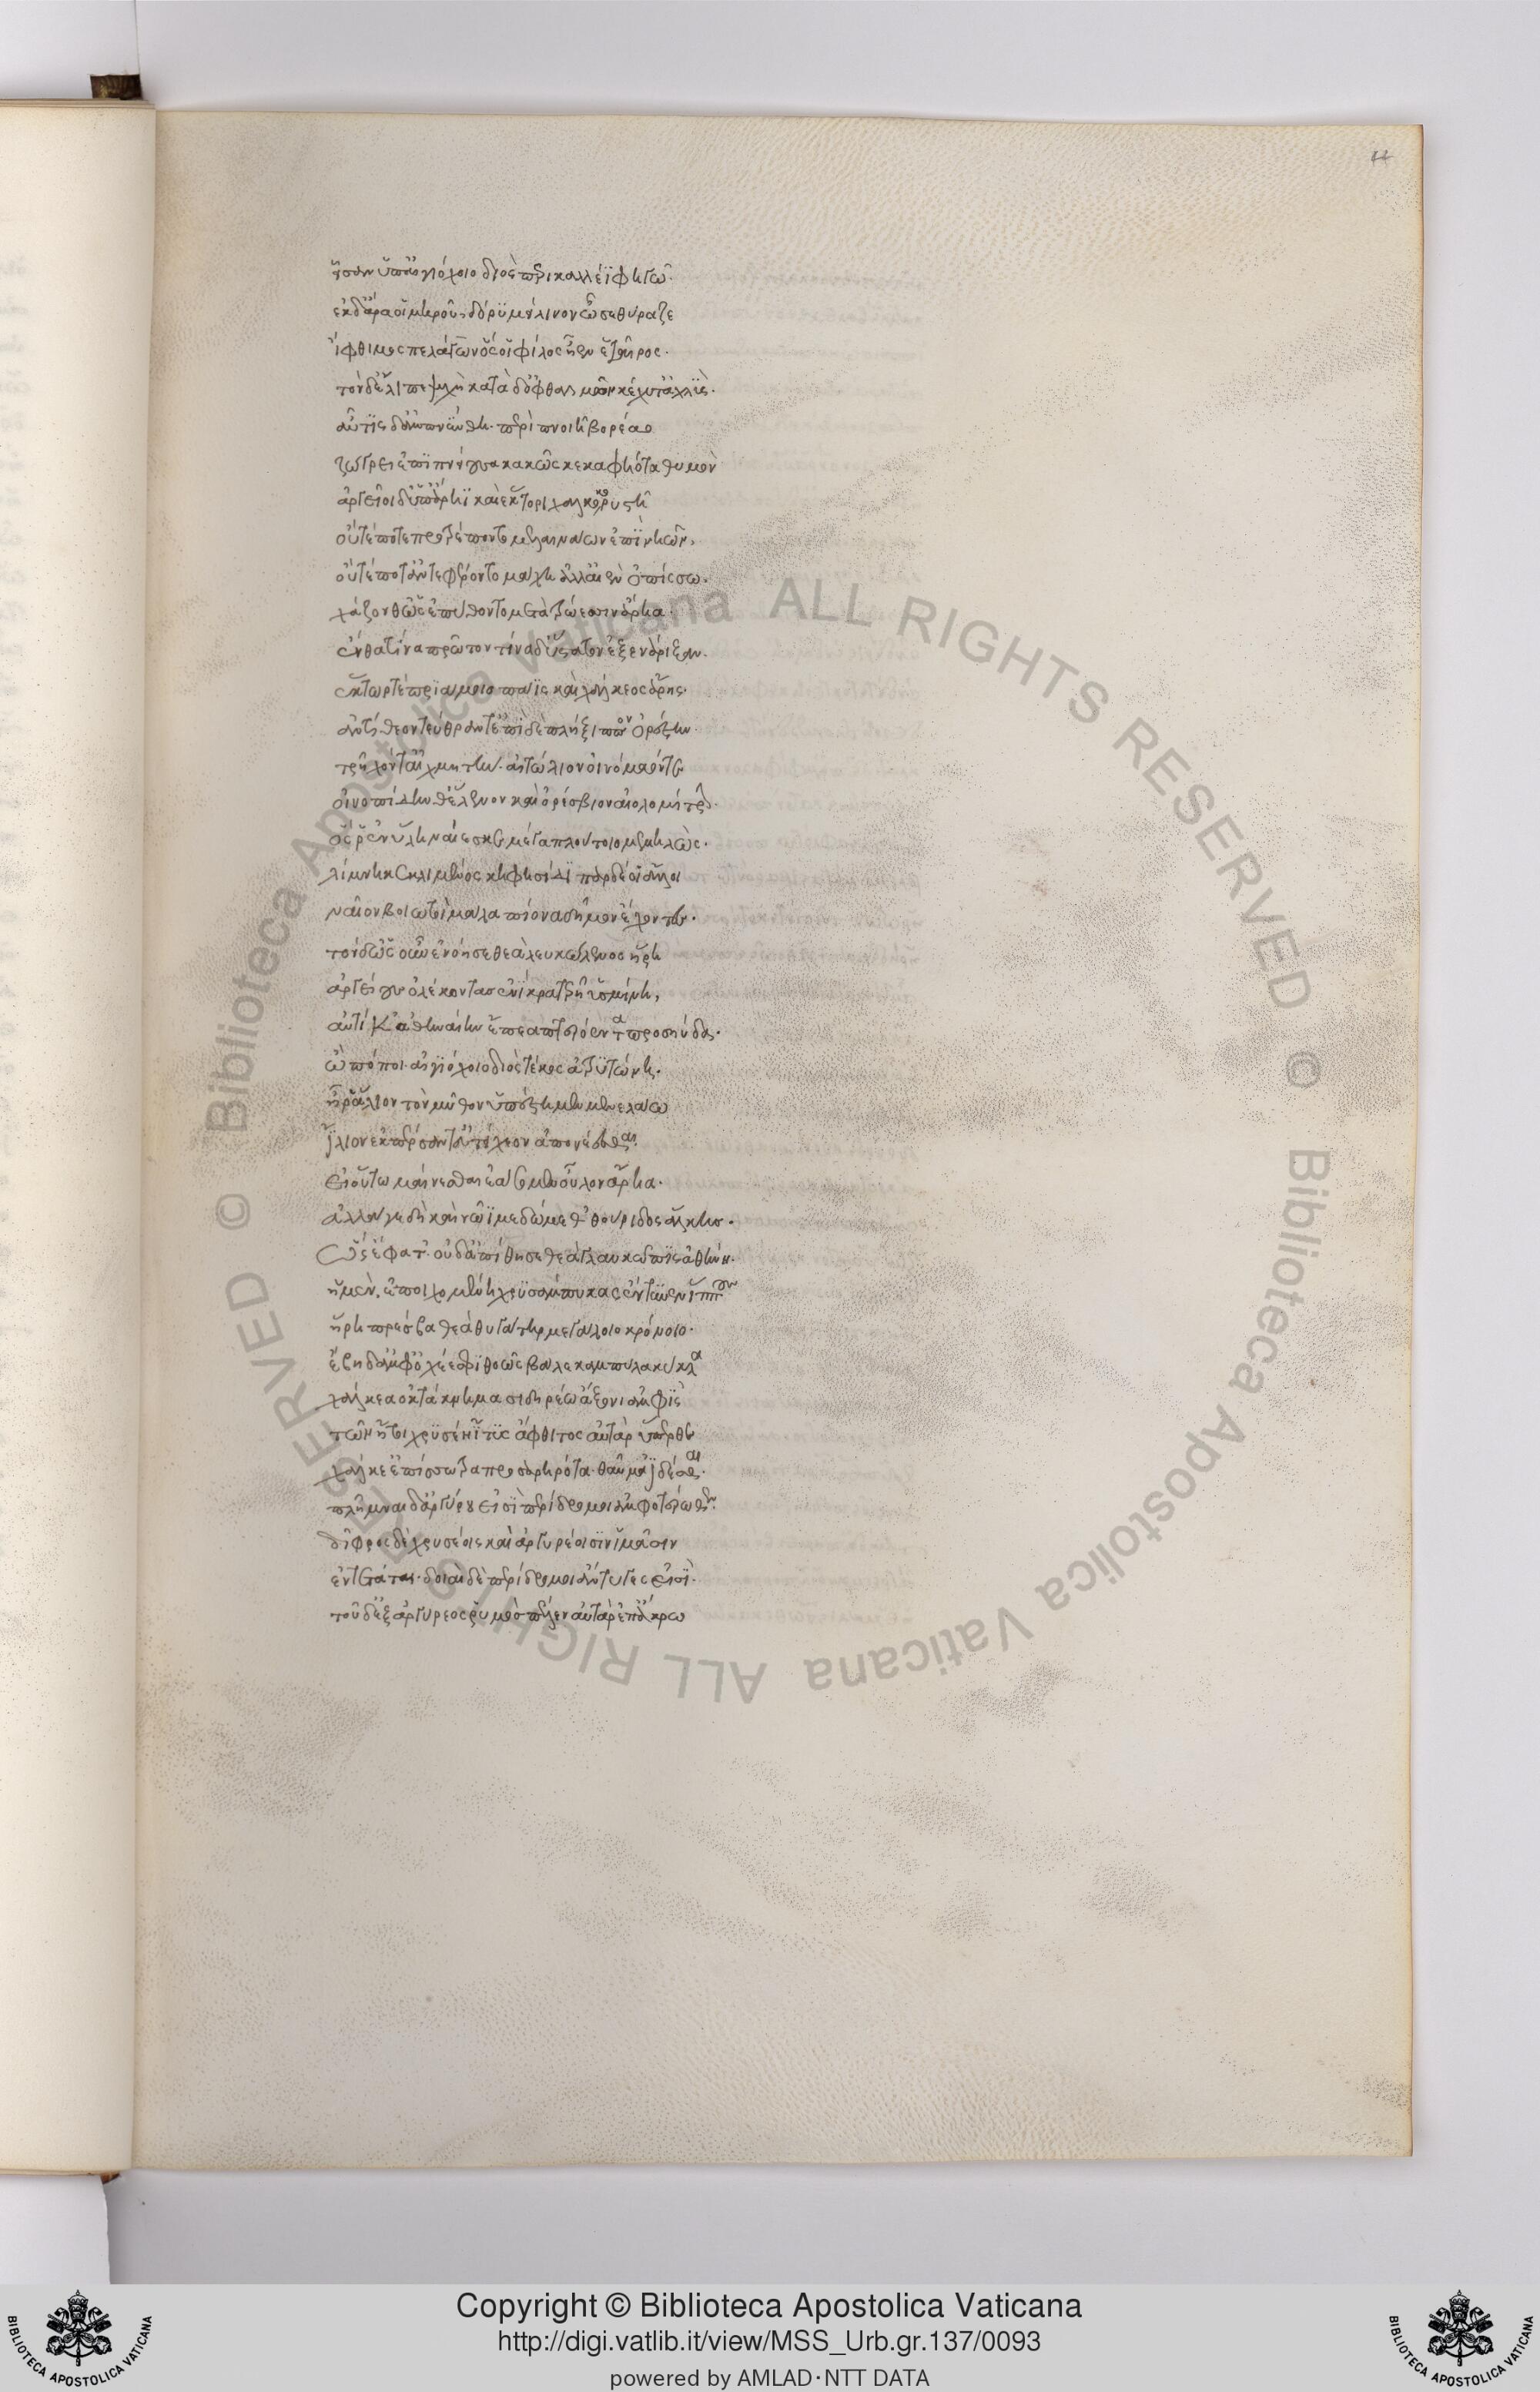 44
ἧσαν ὑπ' αἰγιόχοιο διὸς περικαλλέϊ φηγῶ·
ἐκ δ' ἄρα οἱ μηροῦ δόρυ μείλινον ὦσε θύραζε
ἴφθιμος πελάγων ὅς οἱ φίλος ἦεν ἑταῖρος·
τὸν δ' ἔλιπε ψυχὴ κατὰ δ' ὀφθαλμῶν κέχυτ' ἀχλύς·
αὖτις δ' ἀμπνύνθη· περὶ πνοιὴ βορέαο
ζώγρει ἐπιπνείουσα κακῶς κεκαφηότα θυμὸν
ἀργεῖοι δ' ὑπ' ἄρηϊ καὶ ἕκτορι χαλκοκορυστῆ
οὔτέ ποτε προτρέποντο μελαινάων ἐπὶ νηῶν,
οὔτέ ποτ' ἀντεφέροντο μάχη ἀλλ' αἰὲν ὀπίσσω·
χάζονθ' ὡς ἐπύθοντο μετὰ τρώεσσιν ἄρηα·
ἔνθα τίνα πρῶτον τίνα δ' ὕστατον ἐξενάριξαν·
ἕκτωρ τέ πριάμοιο παῖς καὶ χάλκεος ἄρης·
ἀντίθεον τεύθραντ' ἐπὶ δὲ πλήξιππον ὀρέστην
τρῆχόν τ' αἰχμητὴν αἰτώλιον οἰνόμαόν τε
οἰνοπίδην θ' ἕλενον καὶ ὀρέσβιον αἰολομίτρην·
ὅς ῥ' ἐν ὕλη ναίεσκε μέγα πλούτοιο μεμηλώς·
λίμνη κεκλιμένος κηφησίδι πὰρ δέ οἱ ἄλλοι
ναῖον βοιωτοὶ μάλα πίονα δῆμον ἔχοντες·
τὸν δ' ὡς οὖν ἐνόησε θεὰ λευκώλενος ἥρη
ἀργείους ὀλέκοντας ἐνὶ κρατερῆ ὑσμίνη,
αὐτίκ' ἀθηναίην ἔπεα πτερόεντα προσηύδα·
ὢ πόποι αἰγιόχοιο διὸς τέκος ἀτρυτώνη·
ἦ ῥ' ἅλιον τὸν μῦθον ὑπέστημεν μενελάω
ἴλιον ἐκπέρσαντ' εὐτείχεον ἀπονέεσθαι·
εἰ οὕτω μαίνεσθαι ἐάσομεν οὖλον ἄρηα·
ἀλλ' ἄγε δὴ καὶ νῶϊ μεδώμεθα θούριδος ἀλκῆς·
Ὣς ἔφατ' οὐδ' ἀπίθησε θεὰ γλαυκῶπις ἀθήνη·
ἡ μὲν ἐποιχομένη χρυσάμπυκας ἔντυεν ἵππους
ἥρη πρέσβα θεὰ θυγάτηρ μεγάλοιο κρόνοιο·
ἥβη δ' ἀμφ' ὀχέεσσι θοῶς βάλε καμπύλα κύκλα
χάλκεα ὀκτάκνημα σιδηρέω ἄξονι ἀμφὶς
τῶν ἤτοι χρυσέη ἴτυς ἄφθιτος αὐτὰρ ὕπερθε
χάλκε' ἐπίσσωτρα προσαρηρότα· θαῦμα ἰδέσθαι·
πλῆμναι δ' ἀργύρου εἰσὶ περίδρομοι ἀμφοτέρωθεν·
δίφρος δὲ χρυσέοις καὶ ἀργυρέοισιν ἱμᾶσιν
ἐντέταται· δοιαὶ δὲ περίδρομοι ἄντυγες εἰσὶ·
τοῦ δ' ἐξ ἀργύρεος ῥυμὸς πέλεν αὐτὰρ ἐπ' ἄκρω
Biblioteca Apostolica Vaticana ALL RIGHTS RESERVED ©
Biblioteca Apostolica Vaticana ALL RIGHTS RESERVED ©
Copyright © Biblioteca Apostolica Vaticana
http://digi.vatlib.it/view/MSS_Urb.gr.137/0093
powered by AMLAD·NTT DATA
BIBLIOTECA APOSTOLICA VATICANA
BIBLIOTECA APOSTOLICA VATICANA